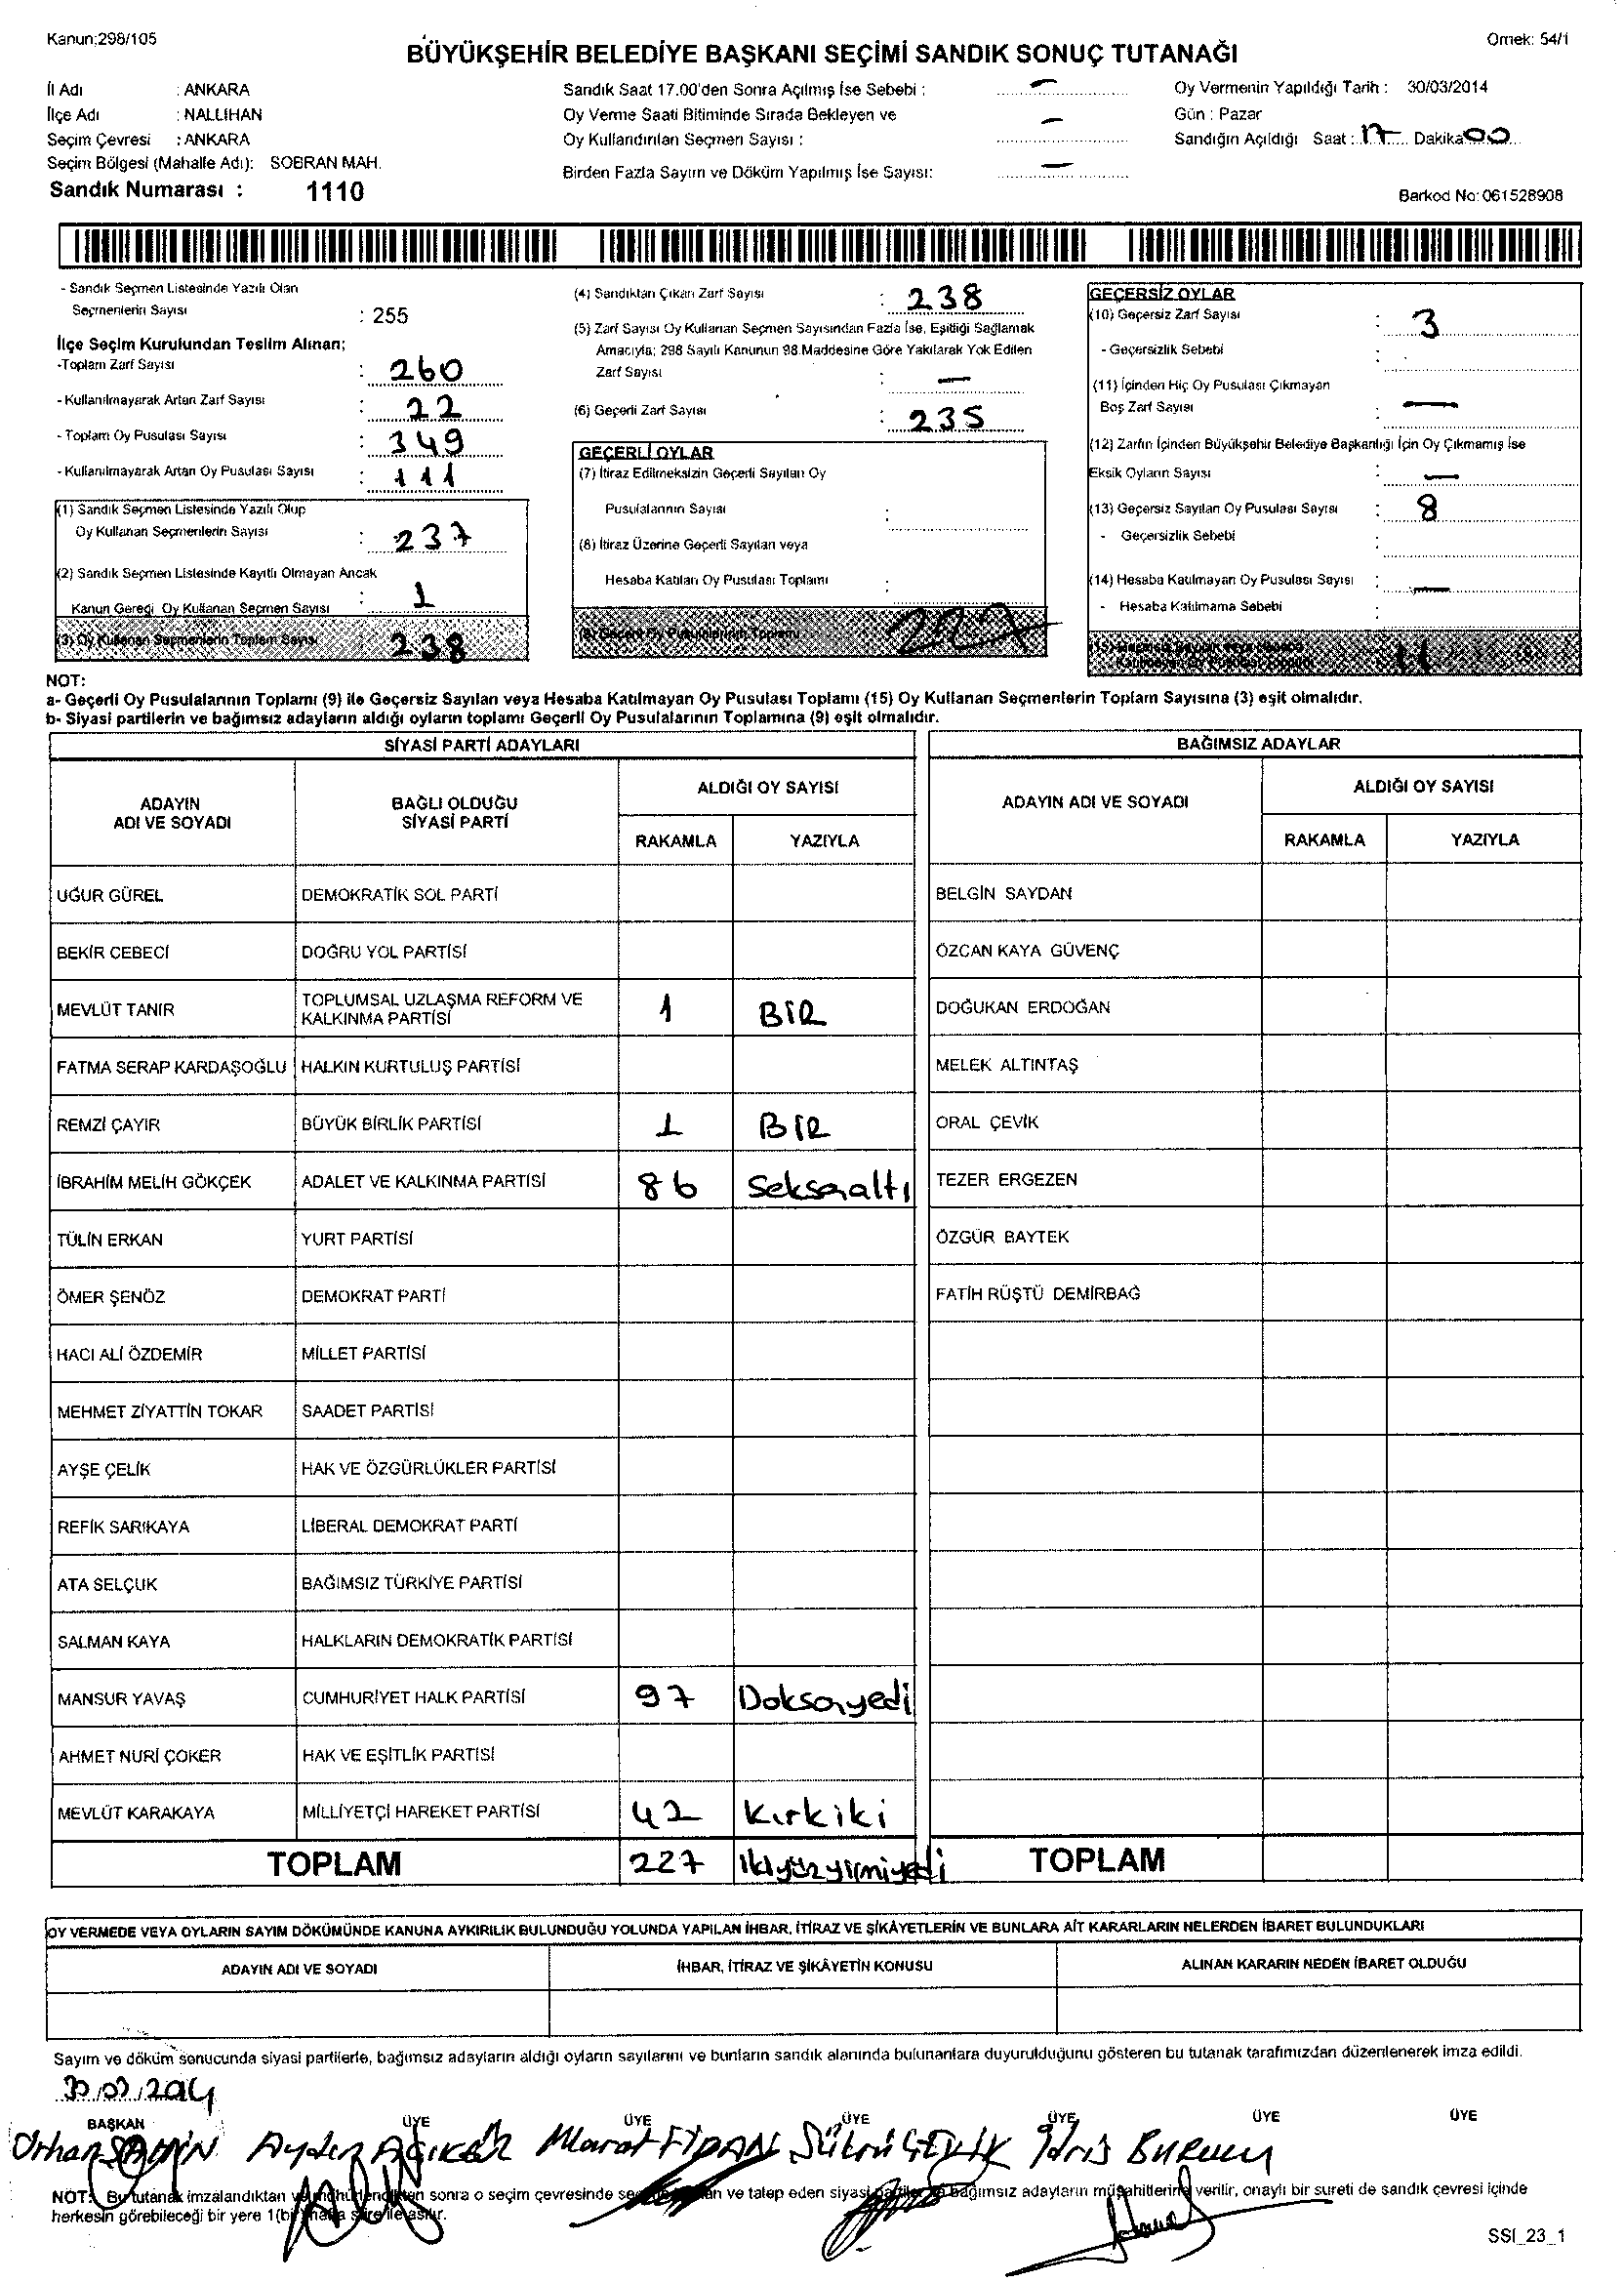 Kanun:298/105
Örnek: 54/1
BÜYÜKŞEHİR BELEDİYE BAŞKANI SEÇİMİ SANDIK SONUÇ TUTANAĞI
İl Adı : ANKARA
İlçe Adı : NALLIHAN
Seçim Çevresi : ANKARA
Seçim Bölgesi (Mahalle Adı): SOBRAN MAH.
Sandık Numarası : 1110
Sandık Saat 17.00'den Sonra Açılmış İse Sebebi : —
Oy Verme Saati Bitiminde Sırada Bekleyen ve
Oy Kullandırılan Seçmen Sayısı : —
Birden Fazla Sayım ve Döküm Yapılmış İse Sayısı: —
Oy Vermenin Yapıldığı Tarih : 30/03/2014
Gün : Pazar
Sandığın Açıldığı Saat : 17 Dakika 00
Barkod No: 061528908
- Sandık Seçmen Listesinde Yazılı Olan
Seçmenlerin Sayısı : 255
İlçe Seçim Kurulundan Teslim Alınan;
-Toplam Zarf Sayısı : 260
- Kullanılmayarak Artan Zarf Sayısı : 22
- Toplam Oy Pusulası Sayısı : 349
- Kullanılmayarak Artan Oy Pusulası Sayısı : 111
(1) Sandık Seçmen Listesinde Yazılı Olup
Oy Kullanan Seçmenlerin Sayısı : 237
(2) Sandık Seçmen Listesinde Kayıtlı Olmayan Ancak
Kanun Gereği Oy Kullanan Seçmen Sayısı : 1
(3) Oy Kullanan Seçmenlerin Toplam Sayısı 238
(4) Sandıktan Çıkan Zarf Sayısı : 238
(5) Zarf Sayısı Oy Kullanan Seçmen Sayısından Fazla İse, Eşitliği Sağlamak
Amacıyla; 298 Sayılı Kanunun 98.Maddesine Göre Yakılarak Yok Edilen
Zarf Sayısı : —
(6) Geçerli Zarf Sayısı : 235
GEÇERLİ OYLAR
(7) İtiraz Edilmeksizin Geçerli Sayılan Oy
Pusulalarının Sayısı :
(8) İtiraz Üzerine Geçerli Sayılan veya
Hesaba Katılan Oy Pusulası Toplamı :
(9) Geçerli Oy Pusulalarının Toplamı 227
GEÇERSİZ OYLAR
(10) Geçersiz Zarf Sayısı : 3
- Geçersizlik Sebebi :
(11) İçinden Hiç Oy Pusulası Çıkmayan
Boş Zarf Sayısı : —
(12) Zarfın İçinden Büyükşehir Belediye Başkanlığı İçin Oy Çıkmamış İse
Eksik Oyların Sayısı : —
(13) Geçersiz Sayılan Oy Pusulası Sayısı : 8
- Geçersizlik Sebebi :
(14) Hesaba Katılmayan Oy Pusulası Sayısı : —
- Hesaba Katılmama Sebebi :
(15) Geçersiz Sayılan veya Hesaba
Katılmayan Oy Pusulası Toplamı 11
NOT:
a- Geçerli Oy Pusulalarının Toplamı (9) ile Geçersiz Sayılan veya Hesaba Katılmayan Oy Pusulası Toplamı (15) Oy Kullanan Seçmenlerin Toplam Sayısına (3) eşit olmalıdır.
b- Siyasi partilerin ve bağımsız adayların aldığı oyların toplamı Geçerli Oy Pusulalarının Toplamına (9) eşit olmalıdır.
SİYASİ PARTİ ADAYLARI
ADAYIN ADI VE SOYADI
BAĞLI OLDUĞU SİYASİ PARTİ
ALDIĞI OY SAYISI
RAKAMLA YAZIYLA
UĞUR GÜREL DEMOKRATİK SOL PARTİ
BEKİR CEBECİ DOĞRU YOL PARTİSİ
MEVLÜT TANIR TOPLUMSAL UZLAŞMA REFORM VE KALKINMA PARTİSİ 1 BİR
FATMA SERAP KARDAŞOĞLU HALKIN KURTULUŞ PARTİSİ
REMZİ ÇAYIR BÜYÜK BİRLİK PARTİSİ 1 BİR
İBRAHİM MELİH GÖKÇEK ADALET VE KALKINMA PARTİSİ 86 Seksenaltı
TÜLİN ERKAN YURT PARTİSİ
ÖMER ŞENÖZ DEMOKRAT PARTİ
HACI ALİ ÖZDEMİR MİLLET PARTİSİ
MEHMET ZİYATTİN TOKAR SAADET PARTİSİ
AYŞE ÇELİK HAK VE ÖZGÜRLÜKLER PARTİSİ
REFİK SARIKAYA LİBERAL DEMOKRAT PARTİ
ATA SELÇUK BAĞIMSIZ TÜRKİYE PARTİSİ
SALMAN KAYA HALKLARIN DEMOKRATİK PARTİSİ
MANSUR YAVAŞ CUMHURİYET HALK PARTİSİ 97 Doksanyedi
AHMET NURİ ÇOKER HAK VE EŞİTLİK PARTİSİ
MEVLÜT KARAKAYA MİLLİYETÇİ HAREKET PARTİSİ 42 Kırkiki
TOPLAM 227 İkiyüzyirmiyedi
BAĞIMSIZ ADAYLAR
ADAYIN ADI VE SOYADI
ALDIĞI OY SAYISI
RAKAMLA YAZIYLA
BELGİN SAYDAN
ÖZCAN KAYA GÜVENÇ
DOĞUKAN ERDOĞAN
MELEK ALTINTAŞ
ORAL ÇEVİK
TEZER ERGEZEN
ÖZGÜR BAYTEK
FATİH RÜŞTÜ DEMİRBAĞ
TOPLAM
OY VERMEDE VEYA OYLARIN SAYIM DÖKÜMÜNDE KANUNA AYKIRILIK BULUNDUĞU YOLUNDA YAPILAN İHBAR, İTİRAZ VE ŞİKÂYETLERİN VE BUNLARA AİT KARARLARIN NELERDEN İBARET BULUNDUKLARI
ADAYIN ADI VE SOYADI
İHBAR, İTİRAZ VE ŞİKÂYETİN KONUSU
ALINAN KARARIN NEDEN İBARET OLDUĞU
Sayım ve döküm sonucunda siyasi partilerle, bağımsız adayların aldığı oyların sayılarını ve bunların sandık alanında bulunanlara duyurulduğunu gösteren bu tutanak tarafımızdan düzenlenerek imza edildi.
30.03.2014
BAŞKAN ÜYE ÜYE ÜYE ÜYE ÜYE ÜYE
Orhan ŞAHİN Aydın AÇIKEL Murat FİDAN Şükrü ÇELİK İdris BURUCU
NOT: Bu tutanak imzalandıktan ve mühürlendikten sonra o seçim çevresinde seçime katılan ve talep eden siyasi partiler ve bağımsız adayların müşahitlerine verilir, onaylı bir sureti de sandık çevresi içinde
herkesin görebileceği bir yere 1(bir) hafta süre ile asılır.
SSİ_23_1